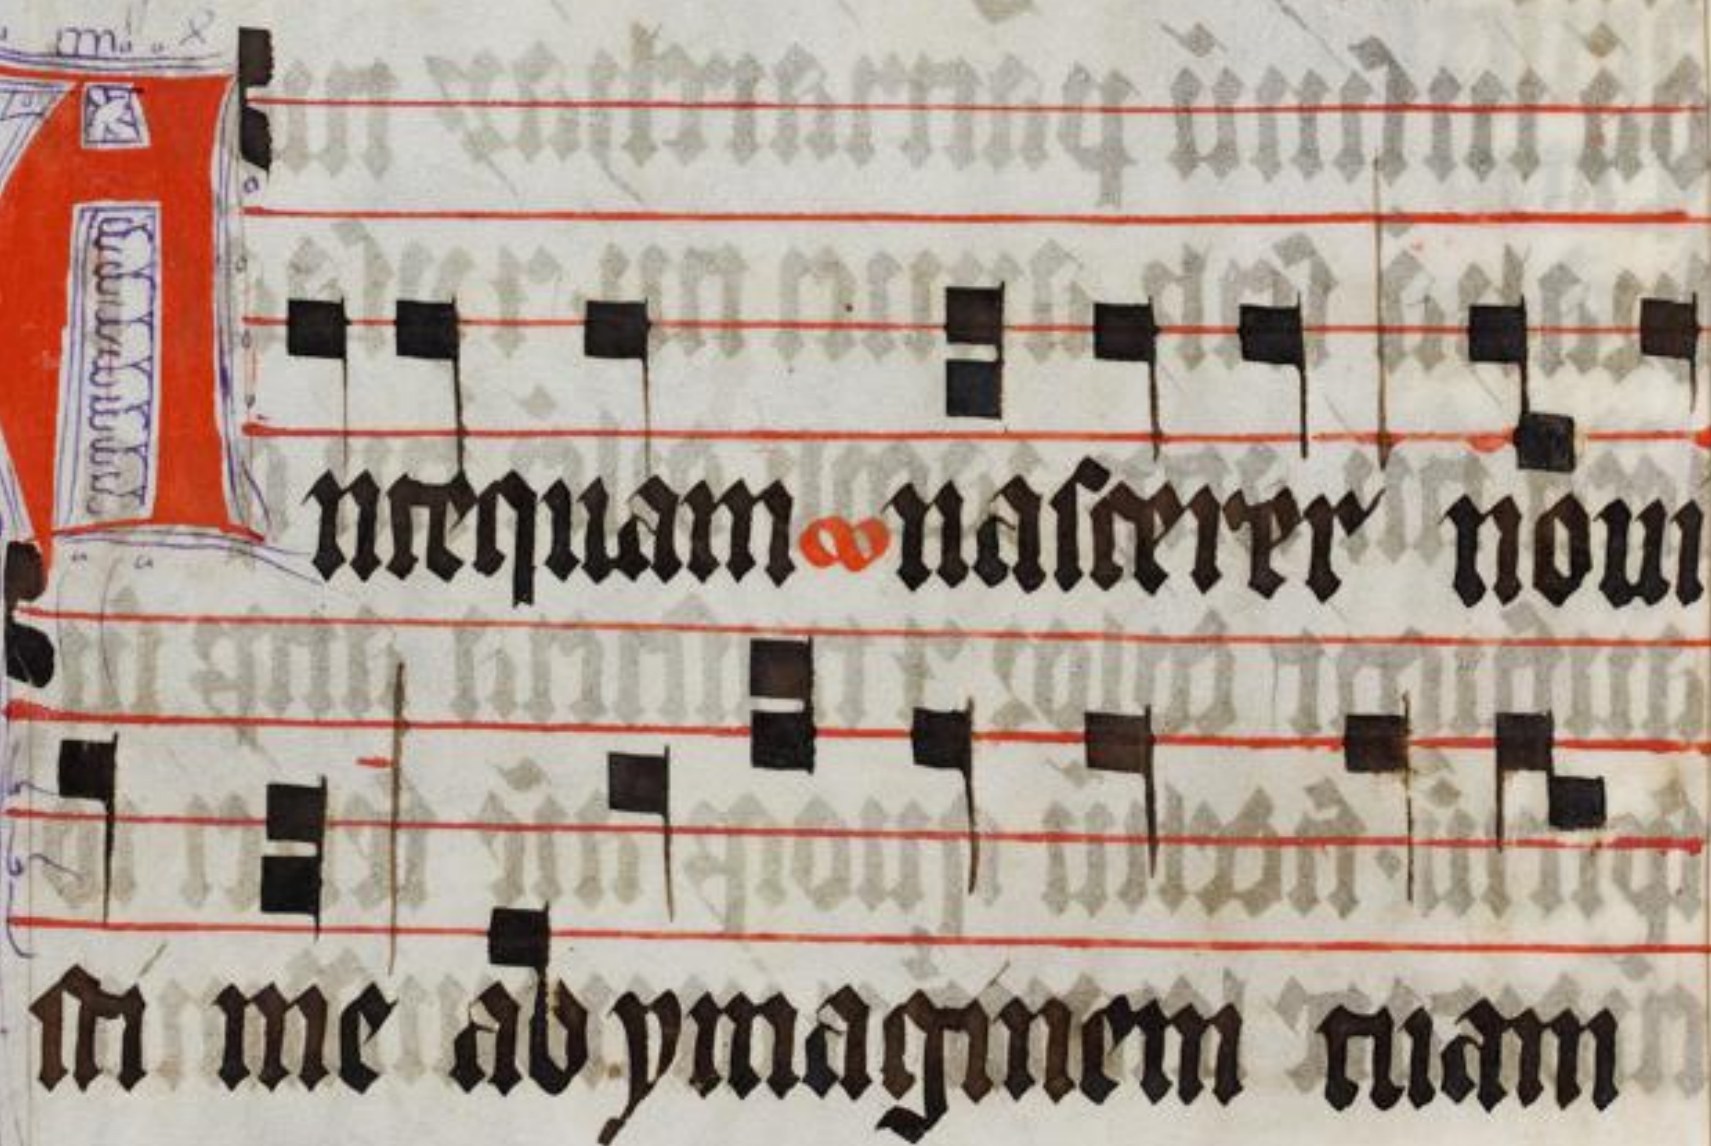 Antequam nascerer noui
sti me ad ymaginem tuam